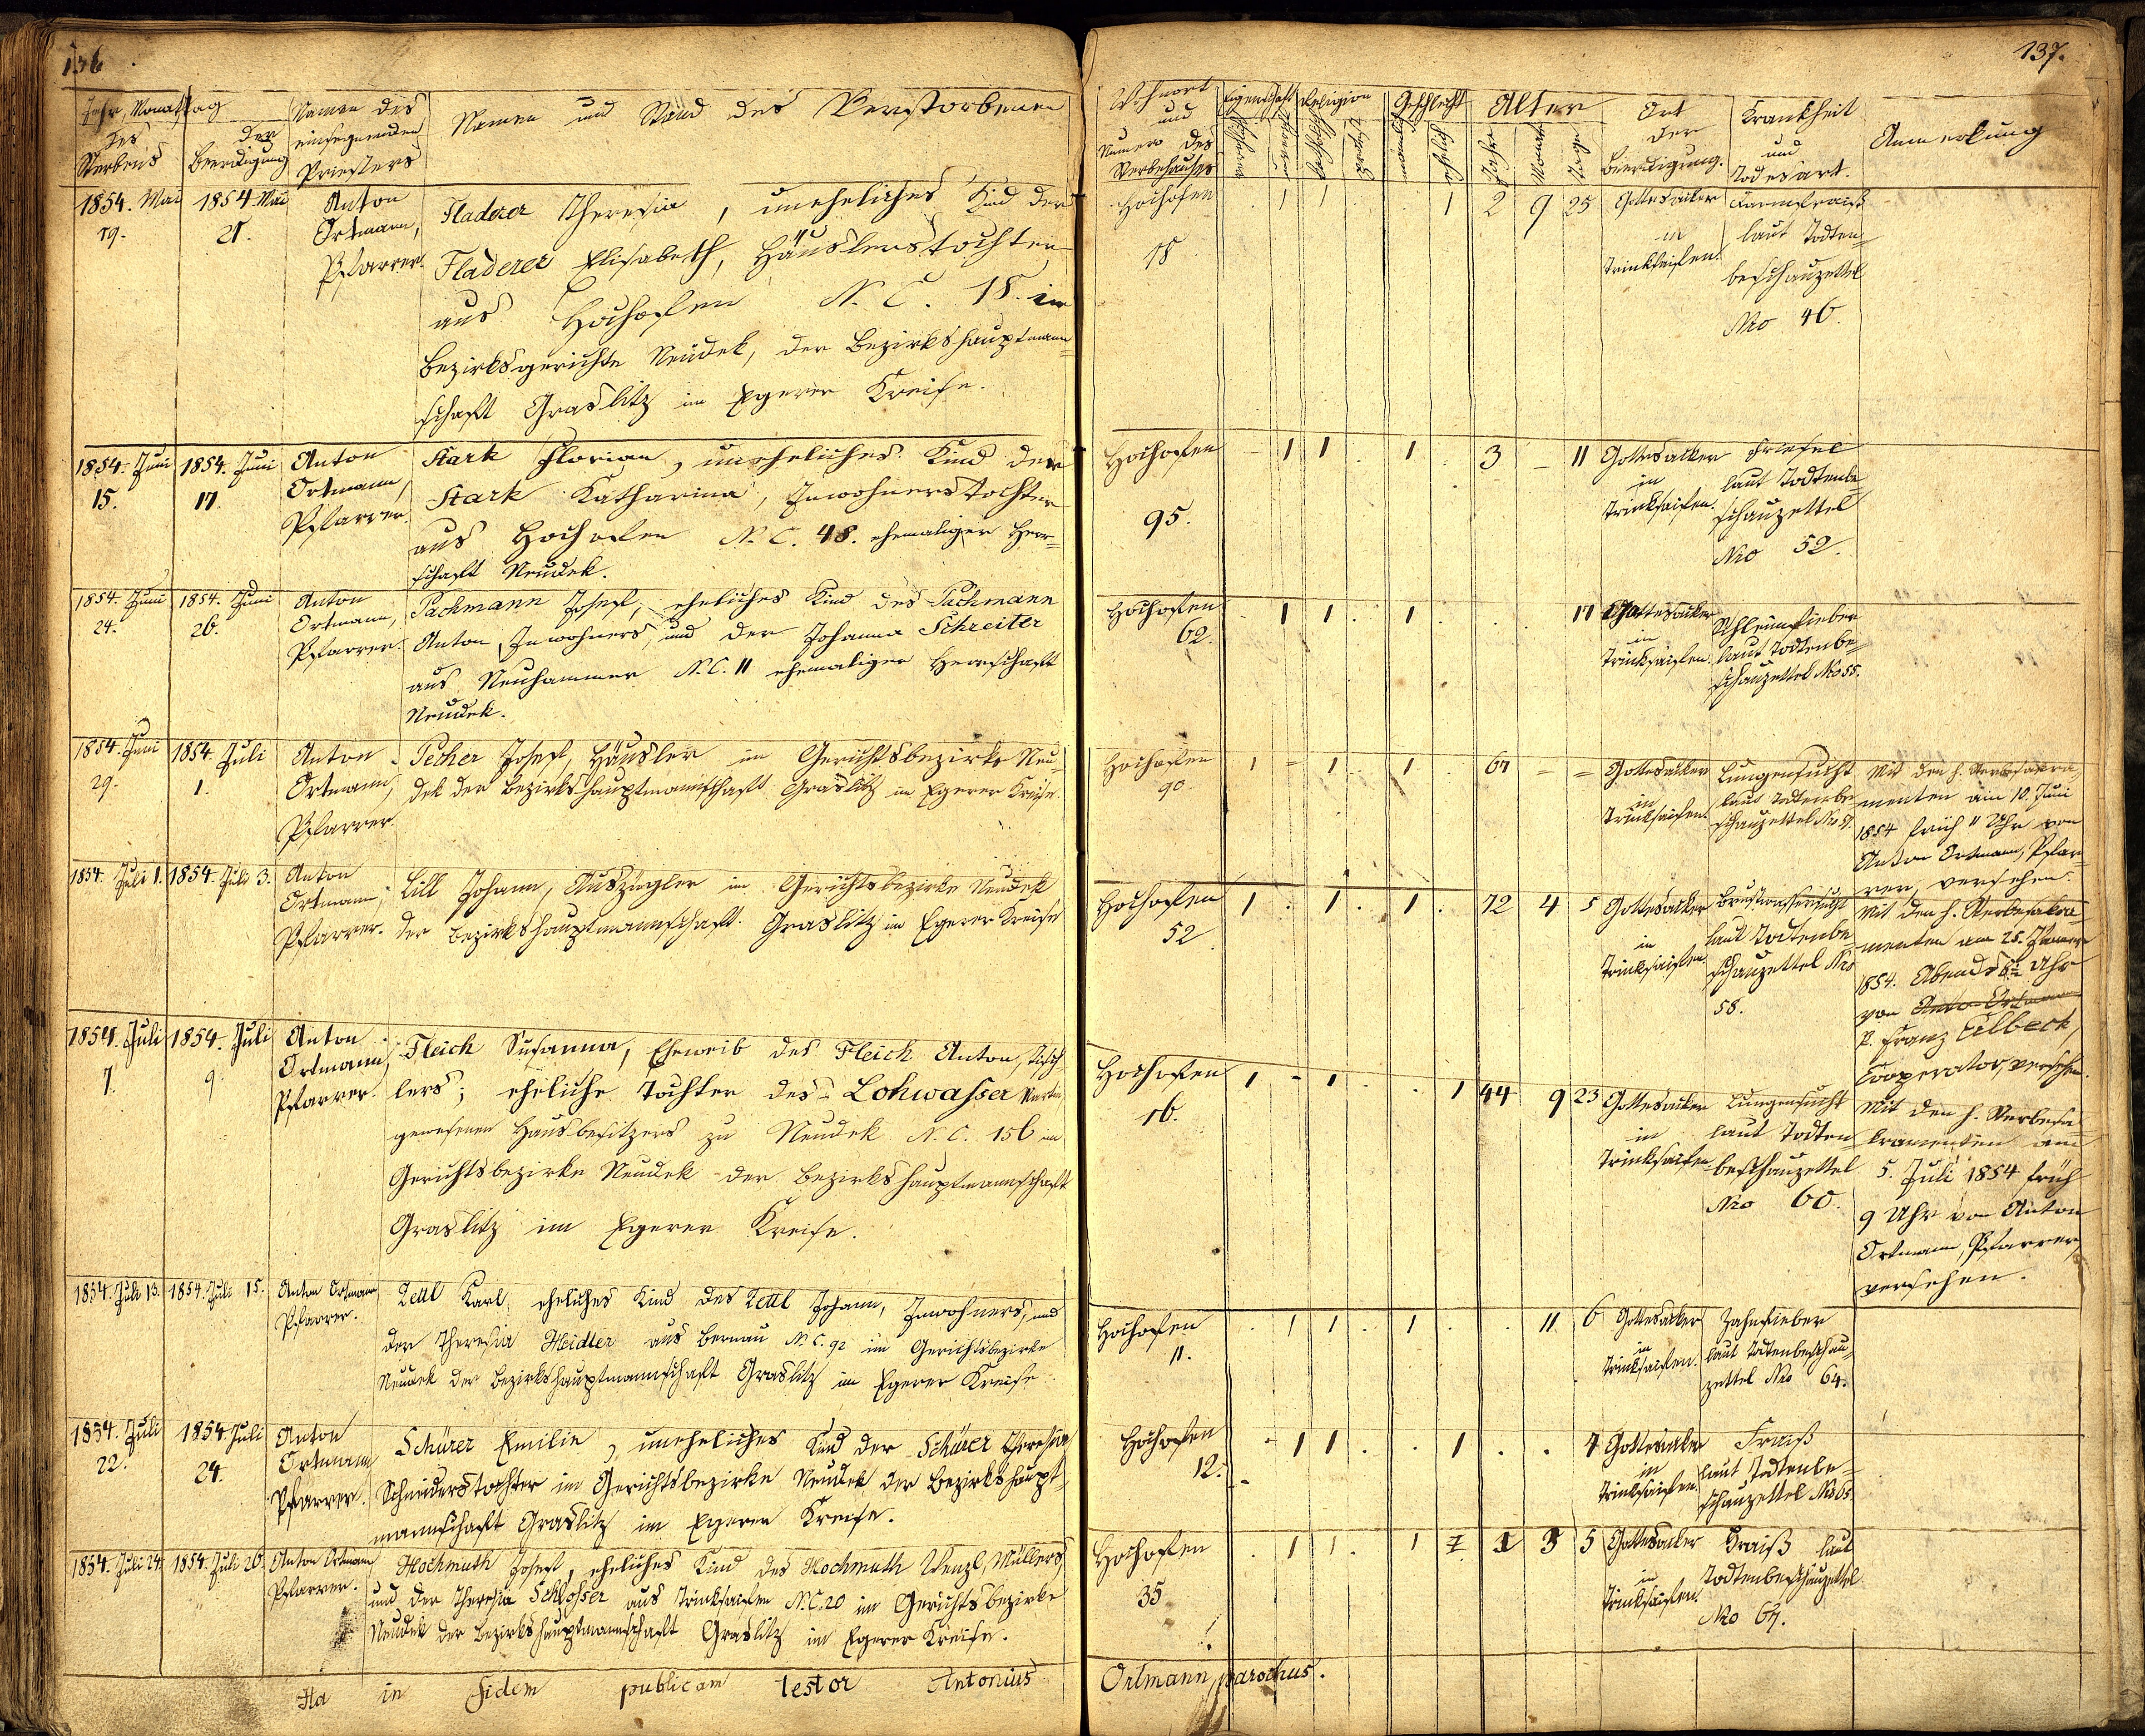 136
137.
Jahr, Monat Tag
des
Sterbens
der
Beerdigung
Namen des
einsegnenden
Priesters
Namen und Stand des Verstorbenen
Wohnort
und
Numero des
Sterbehauses
Eigenschaft
Religion
Geschlecht
Alter
Jahre
Monate
Tage
Ort
der
Beerdigung.
Krankheit
und
Todesart.
Anmerkung
1854. Mai
19.
1854. Mai
21.
Anton
Ortmann,
Pfarrer.
Fladerer Theresia, uneheliches Kind der
Fladerer Elisabeth, Häuslerstochter
aus Hochofen N. C. 18. im
Bezirksgerichte Neudek, der Bezirkshauptmann=
schaft Graslitz im Egerer Kreise.
Hochofen
18
1 1 1 2 9 25
Gottesacker
in
Trinksaifen.
laut Todten=
beschauzettel
Nro 46.
1854. Juni
15.
1854. Juni
17.
Anton
Ortmann,
Pfarrer.
Stark Florian, uneheliches Kind der
Stark Katharina, Inwohnerstochter
aus Hochofen N. C. 48. ehemaliger Herr=
schaft Neudek.
Hochofen
95.
1 1 1 3 – 11
Gottesacker
in
Trinksaifen.
Friesel
laut Todtenbe=
schauzettel
Nro 52.
1854. Juni
24.
1854. Juni
26.
Anton
Ortmann,
Pfarrer.
Pachmann Josef, eheliches Kind des Pachmann
Anton, Inwohners, und der Johanna Schreiter
aus Neuhammer N. C. 11 ehemaliger Herrschaft
Neudek.
Hochofen
62.
1 1 1 17
Gottesacker
in
Trinksaifen.
Schleimfieber
laut Todtenbe=
schauzettel Nro 55.
1854. Juni
29.
1854. Juli
1.
Anton
Ortmann,
Pfarrer.
Pecher Josef, Häusler im Gerichtsbezirke Neu=
dek der Bezirkshauptmannschaft Graslitz im Egerer Kreise.
Hochofen
90.
1 – 1 1 67 – –
Gottesacker
in
Trinksaifen.
Lungensucht
laut Todtenbe=
schauzettel Nro 57.
Mit den h. Sterbsakra=
menten am 10. Juni
1854 früh 11 Uhr von
Anton Ortmann, Pfar=
rer, versehen.
1854. Juli 1.
1854. Juli 3.
Anton
Ortmann,
Pfarrer.
Lill Johann, Auszügler im Gerichtsbezirke Neudek
der Bezirkshauptmannschaft Graslitz im Egerer Kreise
Hochofen
52
1 1 1 72 4 5
Gottesacker
in
Trinksaifen.
Brustwassersucht
laut Todtenbe=
schauzettel Nro
58.
Mit den h. Sterbesakra=
menten am 25. Jänner
1854. Abends 6½ Uhr
von Anton Ortmann
P. Franz Eilbeck,
Cooperator, versehen.
1854. Juli
7.
1854. Juli
9.
Anton
Ortmann,
Pfarrer.
Fleich Susanna, Eheweib des Fleich Anton, Tisch
lers; eheliche Tochter des Lohwasser
gewesenen Hausbesitzers zu Neudek N. C. 156 im
Gerichtsbezirke Neudek der Bezirkshauptmannschaft
Graslitz im Egerer Kreise.
Hochofen
16.
1 – 1 1 44 9 23
Gottesacker
in
Trinksaifen
Lungensucht
laut Todten=
beschauzettel
Nro 60.
Mit den h. Sterbesa=
kramenten am
5. Juli 1854 früh
9 Uhr von Anton
Ortmann, Pfarrer,
versehen.
1854. Juli 13.
1854. Juli 15.
Anton Ortmann
Pfarrer.
Zettl Karl, eheliches Kind des Zettl Johann, Inwohners, und
der Theresia Heidler aus Bernau N. C. 92 im Gerichtsbezirke
Neudek der Bezirkshauptmannschaft Graslitz im Egerer Kreise.
Hochofen
11.
1 1 1 11 6
Gottesacker
in
Trinksaifen.
Zahnfieber
laut Todtenbeschau=
zettel Nro 64.
1854. Juli
22.
1854. Juli
24.
Anton
Ortmann
Pfarrer.
Schürer Emilie, uneheliches Kind der Schürer Theresia
Schneiderstochter im Gerichtsbezirke Neudek der Bezirkshaupt=
mannschaft Graslitz im Egerer Kreise.
Hochofen
12.
1 1 1
Gottesacker
in
Trinksaifen.
Fraiß
laut Todtenbe=
schauzettel Nro 65.
1854. Juli 24.
1854. Juli 26.
Anton Ortmann
Pfarrer.
Hochmuth Josef, eheliches Kind des Hochmuth Wenzl, Müllers,
und der Theresia Schlosser aus Trinksaifen N. C. 20 im Gerichtsbezirke
Neudek der Bezirkshauptmannschaft Graslitz im Egerer Kreise.
Hochofen
35
1 1 1 1 3 5
Gottesacker
in
Trinksaifen.
Fraiß laut
Todtenbeschauzettel
Nro 67.
Ita in fidem publicam testor Antonius Ortmann, parochus.